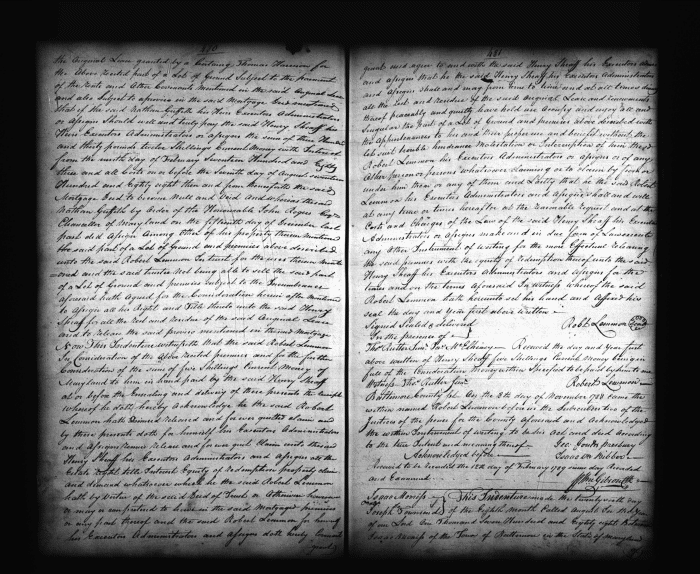 480
the Original Lease granted by a Certain Thomas Harrison for
the Above recited part of a Lot of Ground Subject to the payment
of the Rents and Other Covenants mentioned in the said Original Lease
and also Subject to a proviso in the said Mortgage Deed mentioned
that if the said Nathan Griffith his Heirs Executors Administrators
or Assigns Should well and truly pay the said Henry Shaff his
Heirs Executors Administrators or Assigns the sum of three Hundred
and thirty pounds twelve Shillings Current Money with Interest
from the ninth day of February Seventeen Hundred and Eighty
three and all Costs on or before the Seventh day of August Seventeen
Hundred and Eighty eight then and from thenceforth the said
Mortgage Deed to become Null and Void And whereas the said
Nathan Griffith by Order of the Honourable John Rogers Esqr
Chancellor of Maryland on the day of December last
past did Assign Among Other of his property
the said part of a Lot of Ground and premises above described
unto the said Robert Lemmon In trust for the uses therein mentioned
and the said trustee Not being able to sell the said part
of a Lot of Ground and premises Subject to the Incumbrance
aforesaid hath Agreed for the Consideration herein after mentioned
to Assign all his Right and Title thereto unto the said Henry
Shaff for all the rest and residue of the said Original Lease
and to release the said proviso mentioned in the said Mortgage
Now This Indenture witnesseth that the said Robert Lemmon
In Consideration of the Above recited premises and for the further
Consideration of the sum of five Shillings Current Money of
Maryland to him in hand paid by the said Henry Shaff
at or before the Ensealing and delivery of these presents the receipt
whereof he doth hereby acknowledge he the said Robert
Lemmon hath Remised Released and forever quitted claim and
by these presents doth for himself his Executors Administrators
and Assigns Remise Release and forever quit Claim unto the said
Henry Shaff his Executors Administrators and Assigns all the
Estate Right title Interest Equity of redemption property claim
and demand whatsoever which he the said Robert Lemmon
hath by Virtue of the said Deed of Trust or Otherwise howsoever
or may or can pretend to have in the said Mortgaged premises
or any part thereof and the said Robert Lemmon for himself
his Executors Administrators and Assigns doth hereby Covenant
grant
481
grant and agree to and with the said Henry Shaff his Executors Admrs
and Assigns that he the said Henry Shaff his Executors Administrators
and Assigns shall and may from time to time and at all times during
all the rest and residue of the said Original Lease and
thereof peaceably and quietly have hold use Occupy and enjoy all and
Singular the part of a Lot of Ground and premises above described with
the Appurtenances to his and their proper use and benefit without the
let suit trouble hindrance Molestation or Interruption of him the said
Robert Lemmon his Executors Administrators or Assigns or of any
Other person or persons whatsoever claiming or to claim by from or
under him them or any of them and Lastly that he the said Robert
Lemmon his Executors Administrators and Assigns shall and will
at any time or times hereafter at the reasonable request and at the
Costs and Charges of the Law of the said Henry Shaff his Executors
Administrators or Assigns make and in due form of Law execute
any Other Instrument of writing for the more Effectual releasing
the said premises with the equity of redemption thereof unto the said
Henry Shaff his Executors Administrators and Assigns for the
times and on the terms aforesaid In witness whereof the said
Robert Lemmon hath hereunto set his hand and Affixed his
seal the day and year first above written
Signed Sealed & delivered
In the presence of
Robt Lemmon
Thos Rutter Junr Received the day and year first
above written of Henry Shaff five Shillings Current Money being in
full of the Consideration Money within Specified to be paid by him to me
Witness Thos Rutter Junr Robert Lemmon
Baltimore County Sct. On the 8th day of November 1788 Came the
within named Robert Lemmon before us the Subscribers two of the
Justices of the peace for the County aforesaid and Acknowledged
the within Instrument of writing to be his Act and deed According
to the true Intent and meaning thereof
Acknowledged before Geo: Gouldsmith Presbury
Isaac Vn Bibber
Received to be recorded the 12th day of February 1789 same day Recorded
and Examined
Wm Gibson Clk
Joseph Townsend This Indenture made the twenty sixth day
of the Eighth Month Called August In the Year
of our Lord One Thousand Seven Hundred and Eighty eight Between
of the Town of Baltimore in the State of Maryland